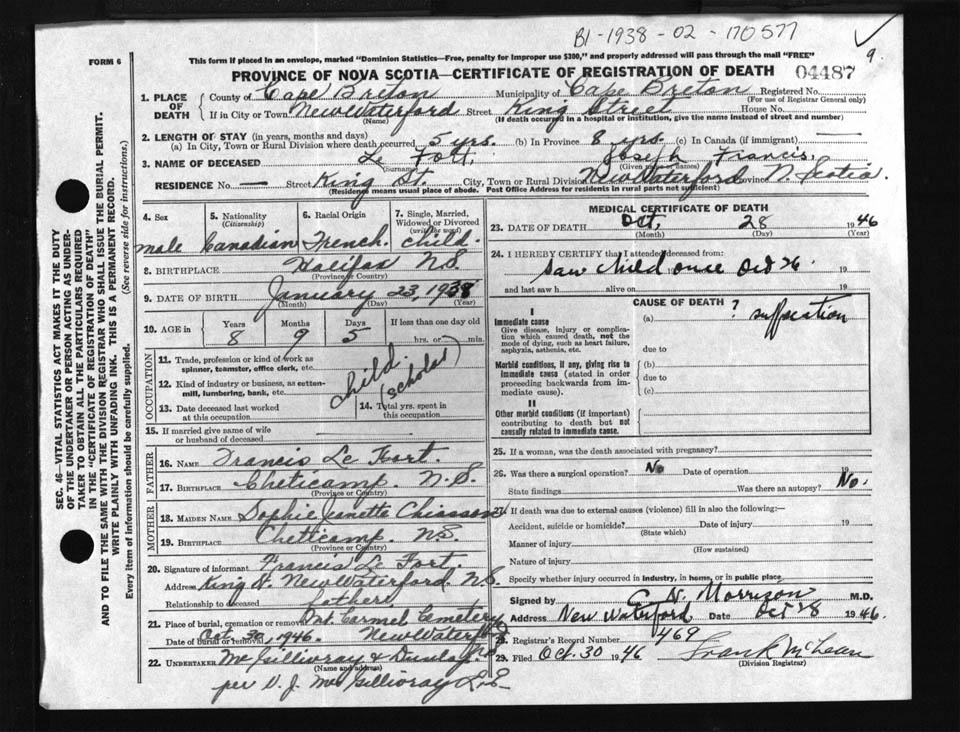 B1-1938-02-170577
9.
FORM 6
This form if placed in an envelope, marked "Dominion Statistics—Free, penalty for improper use $300," and properly addressed will pass through the mail "FREE"
PROVINCE OF NOVA SCOTIA—CERTIFICATE OF REGISTRATION OF DEATH 04487
1. PLACE OF DEATH County of Cape Breton Municipality of Cape Breton Registered No.
(For use of Registrar General only)
If in City or Town New Waterford Street King Street House No.
(Name) (If death occurred in a hospital or institution, give the name instead of street and number)
2. LENGTH OF STAY (in years, months and days)
(a) In City, Town or Rural Division where death occurred 5 yrs. (b) In Province 8 yrs. (c) In Canada (if immigrant) —
3. NAME OF DECEASED Le Fort, Joseph Francis,
(Surname) (Given names)
RESIDENCE No. — Street King St. City, Town or Rural Division New Waterford Province N. Scotia.
(Residence means usual place of abode. Post Office Address for residents in rural parts not sufficient)
4. Sex male
5. Nationality (Citizenship) Canadian
6. Racial Origin French.
7. Single, Married, Widowed or Divorced (write the word) child.
8. BIRTHPLACE Halifax N.S.
(Province or Country)
9. DATE OF BIRTH January 23, 1938
(Month) (Day) (Year)
10. AGE in Years 8 Months 9 Days 5 If less than one day old hrs. or min.
OCCUPATION
11. Trade, profession or kind of work as spinner, teamster, office clerk, etc.
12. Kind of industry or business, as cotton-mill, lumbering, bank, etc.
child (scholar)
13. Date deceased last worked at this occupation
14. Total yrs. spent in this occupation
15. If married give name of wife or husband of deceased
FATHER
16. NAME Francis Le Fort.
17. BIRTHPLACE Cheticamp. N.S.
(Province or Country)
MOTHER
18. MAIDEN NAME Sophie Jeanette Chiasson
19. BIRTHPLACE Cheticamp. N.S.
(Province or Country)
20. Signature of informant Francis Le Fort.
Address King St. New Waterford. N.S.
Relationship to deceased father
21. Place of burial, cremation or removal Mt. Carmel Cemetery
Date of burial or removal Oct. 30, 1946. New Waterford
22. UNDERTAKER McGillivray & Dunlap
(Name and address)
per V. J. McGillivray
MEDICAL CERTIFICATE OF DEATH
23. DATE OF DEATH Oct, 28 1946
(Month) (Day) (Year)
24. I HEREBY CERTIFY that I attended deceased from:
Saw child once Oct 26. 19
and last saw h alive on 19
CAUSE OF DEATH
I
Immediate cause
Give disease, injury or complication which caused death, not the mode of dying, such as heart failure, asphyxia, asthenia, etc.
(a) ? suffocation
due to
Morbid conditions, if any, giving rise to immediate cause (stated in order proceeding backwards from immediate cause).
(b)
due to
(c)
II
Other morbid conditions (if important) contributing to death but not causally related to immediate cause.
25. If a woman, was the death associated with pregnancy?
26. Was there a surgical operation? No Date of operation 19
State findings Was there an autopsy? No.
27. If death was due to external causes (violence) fill in also the following:—
Accident, suicide or homicide? Date of injury 19
(State which)
Manner of injury
(How sustained)
Nature of injury
Specify whether injury occurred in industry, in home, or in public place
Signed by C. N. Morrison M.D.
Address New Waterford Date Oct 28 1946.
28. Registrar's Record Number 469
29. Filed Oct. 30 1946 Frank McLean
(Division Registrar)
SEC. 46—VITAL STATISTICS ACT MAKES IT THE DUTY
OF THE UNDERTAKER OR PERSON ACTING AS UNDER-
TAKER TO OBTAIN ALL THE PARTICULARS REQUIRED
IN THE "CERTIFICATE OF REGISTRATION OF DEATH"
AND TO FILE THE SAME WITH THE DIVISION REGISTRAR WHO SHALL ISSUE THE BURIAL PERMIT.
WRITE PLAINLY WITH UNFADING INK. THIS IS A PERMANENT RECORD.
Every item of information should be carefully supplied. (See reverse side for instructions.)